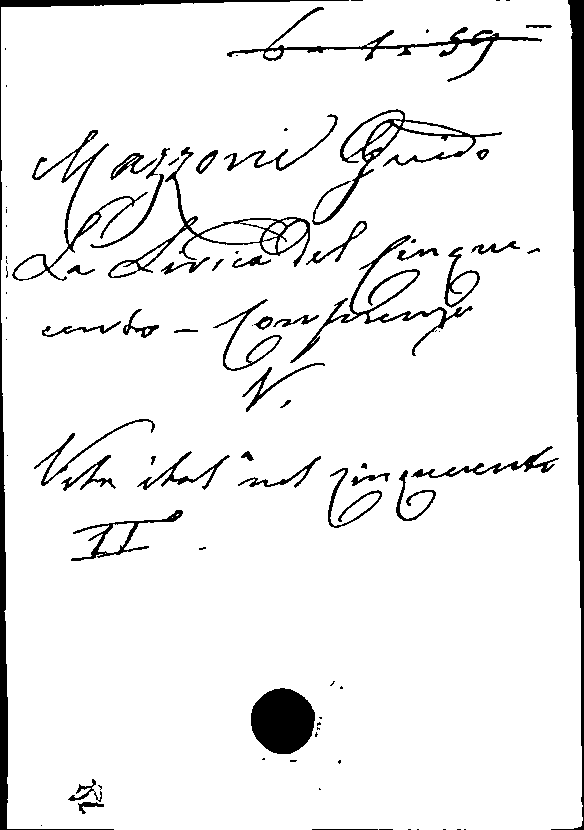 6 - 1 : 59
Mazzoni Guido
La Lirica del Cinque-
cento - Conferenza
V.
Vita ital.ª nel cinquecento
II.